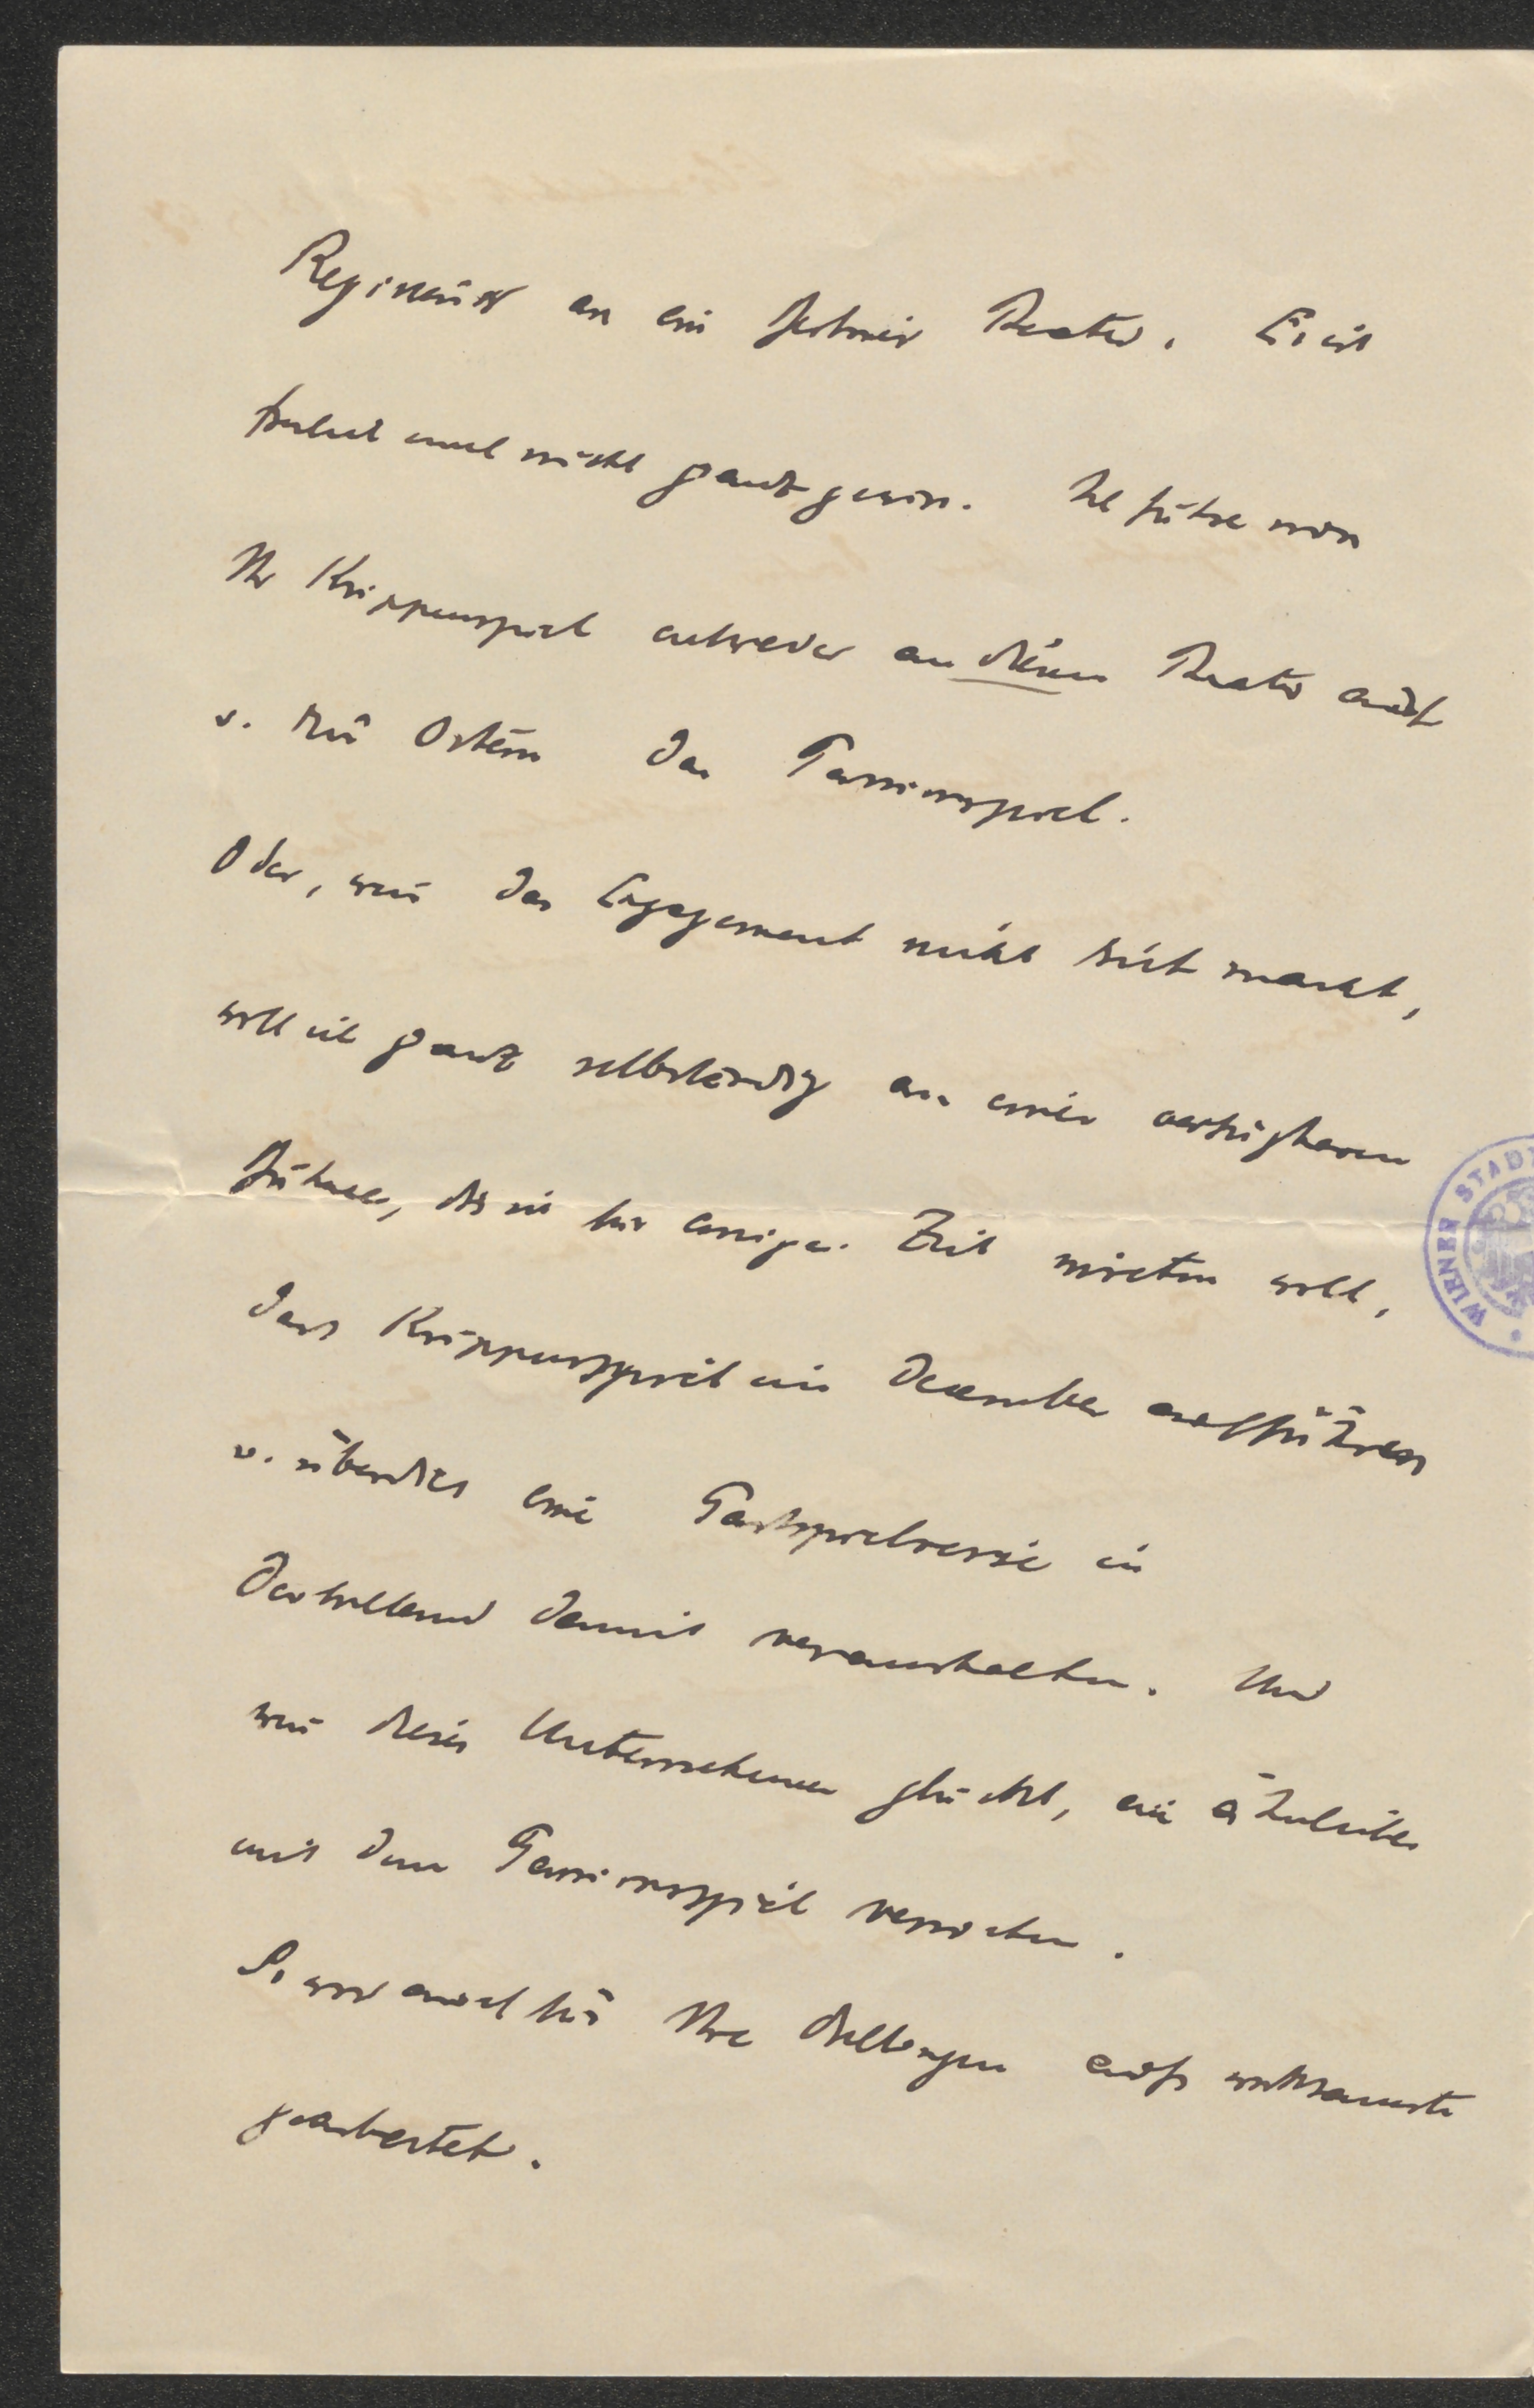 Regisseur an ein Berliner Theater. Es ist
freilich noch nicht ganz gewiss. Ich führe nun
Ihr Krippenspiel entweder an diesem Theater auf
u. zu Ostern das Passionsspiel.
Oder, wenn das Engagement nicht
will ich ganz selbständig an einer verfügbaren
Bühne, die ich für einige Zeit mieten will,
das Krippenspiel im Dezember aufführen
u. überdies eine Gastspielreise in
Deutschland damit veranstalten. Und
wenn dieses Unternehmen glückt, ein ähnliches
mit dem Passionsspiel versuchen.
So wird auch für Ihre Dichtungen aufs wirksamste
gearbeitet.
WIENER STAD